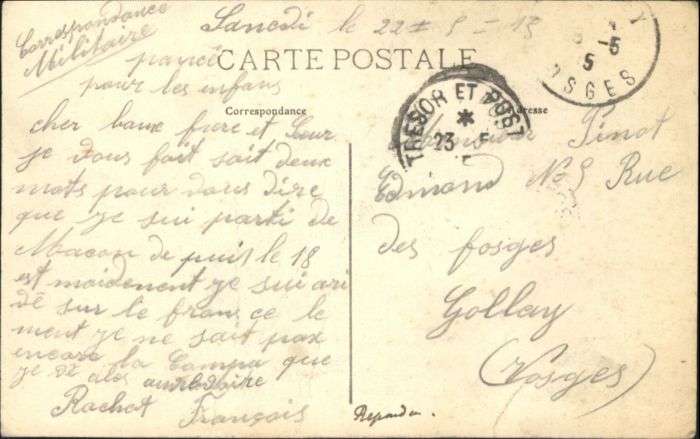 Correspondance
Militaire
Samedi le 22 = 5 = 15
CARTE POSTALE
pour les enfans
Correspondance
TRESOR ET POST
* 23 5
5
5
OSGES
cher baux frere et Seur
je vous fait sait deux
mots pour vous dire
que je sui parti de
Macon de puis le 18
est maidenent je sui ari
de sur le france le
ment je ne sait pax
encore la Compa que
Rachet François
Pinot
Edmond No 9 Rue
des fosges
Gollay
(Vosges)